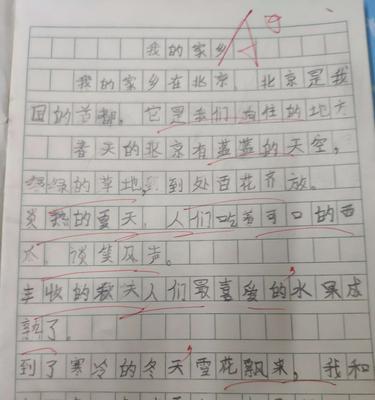 我的家乡
我的家乡在北京，北京是我
国的首都。它是我们向往的地方
春天的北京有蓝蓝的天空，
绿绿的草地，到处百花齐放。
炎热的夏天，人们吃着可口的西
瓜，谈笑风声。
丰收的秋天人们最喜爱的水果成
熟了。
到了寒冷的冬天雪花飘来，我和